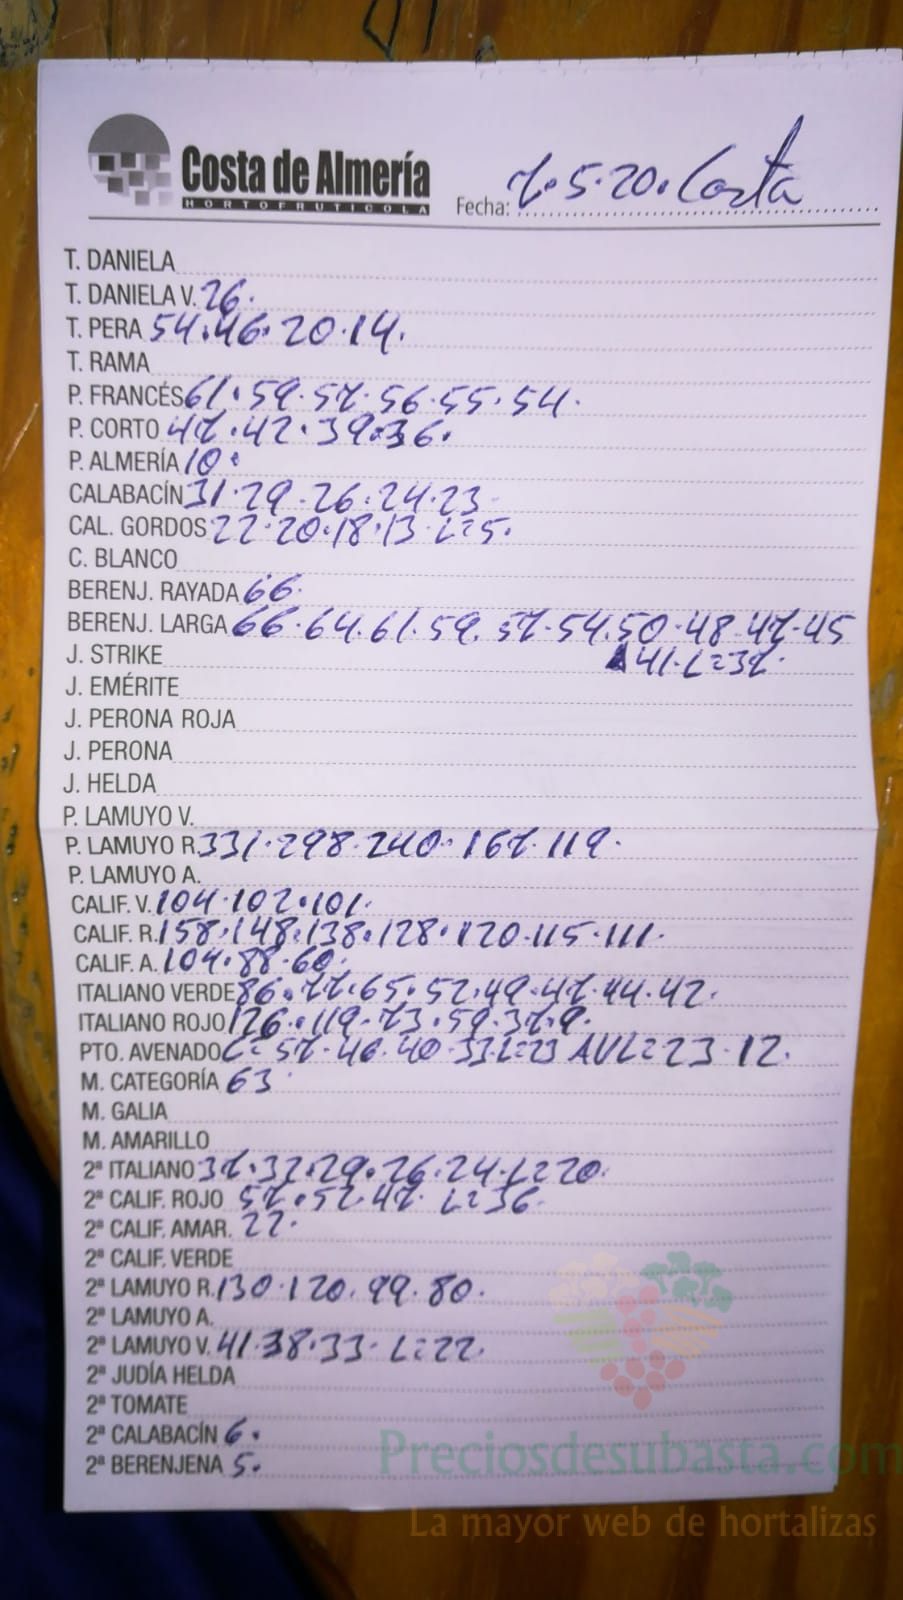 Costa de Almería
HORTOFRUTICOLA
Fecha: 7.5.20. Costa
T. DANIELA
T. DANIELA V. 26.
T. PERA 54.46.20.14.
T. RAMA
P. FRANCÉS 61.59.57.56.55.54.
P. CORTO 47.42.39.36.
P. ALMERÍA 10.
CALABACÍN 31.29.26.24.23
CAL. GORDOS 22.20.18.13.L=5.
C. BLANCO
BERENJ. RAYADA 66.
BERENJ. LARGA 66.64.61.59.57.54.50.48.47.45
J. STRIKE
41.L=37.
J. EMÉRITE
J. PERONA ROJA
J. PERONA
J. HELDA
P. LAMUYO V.
P. LAMUYO R. 331.298.240.167.119.
P. LAMUYO A.
CALIF. V. 104.102.101.
CALIF. R. 158.148.138.128.120.115.111.
CALIF. A. 104.88.60.
ITALIANO VERDE 86.77.65.52.49.47.44.42.
ITALIANO ROJO 126.119.73.59.37.9.
PTO. AVENADO C=57.46.40.33.L=23 AVL=23.12.
M. CATEGORÍA 63
M. GALIA
M. AMARILLO
2ª ITALIANO 37.32.29.26.24.L=20.
2ª CALIF. ROJO 57.52.47. L=36.
2ª CALIF. AMAR. 22.
2ª CALIF. VERDE
2ª LAMUYO R. 130.120.99.80.
2ª LAMUYO A.
2ª LAMUYO V. 41.38.33. L=22.
2ª JUDÍA HELDA
2ª TOMATE
2ª CALABACÍN 6.
2ª BERENJENA 5.
Preciosdesubasta.com
La mayor web de hortalizas